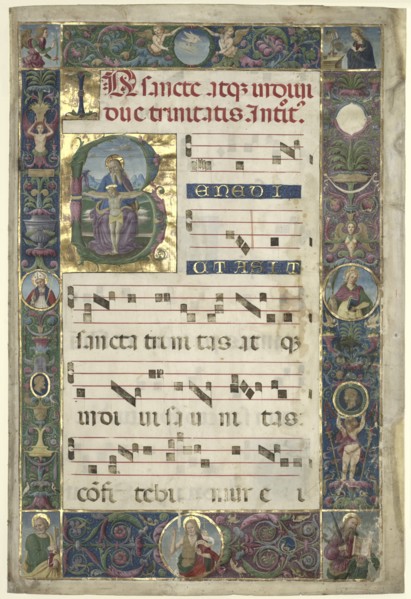 IN sancte atqz indiui
due trinitatis Introit.
BENEDI
CTA SIT
sancta tri ni tas at qz
indi ui sa u ni tas:
cōfi tebi mur e i